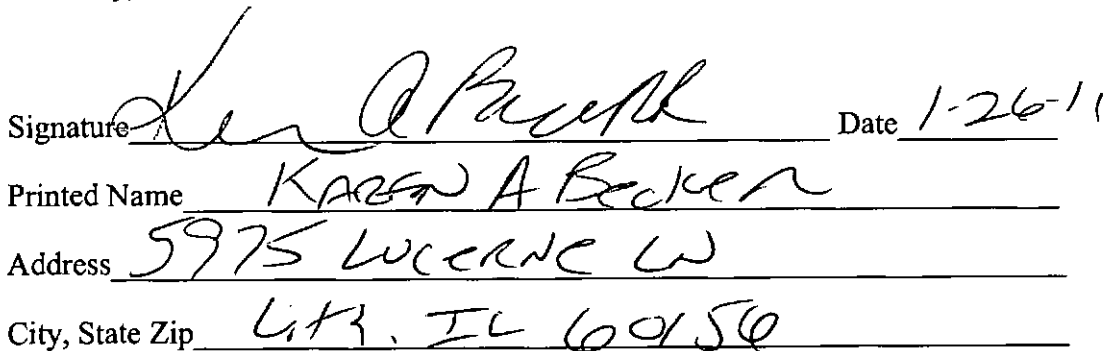 Signature Karen A Becker Date 1-26-11
Printed Name KAREN A Becker
Address 5975 LUCERNE LN
City, State Zip L.I.T.H. IL 60156